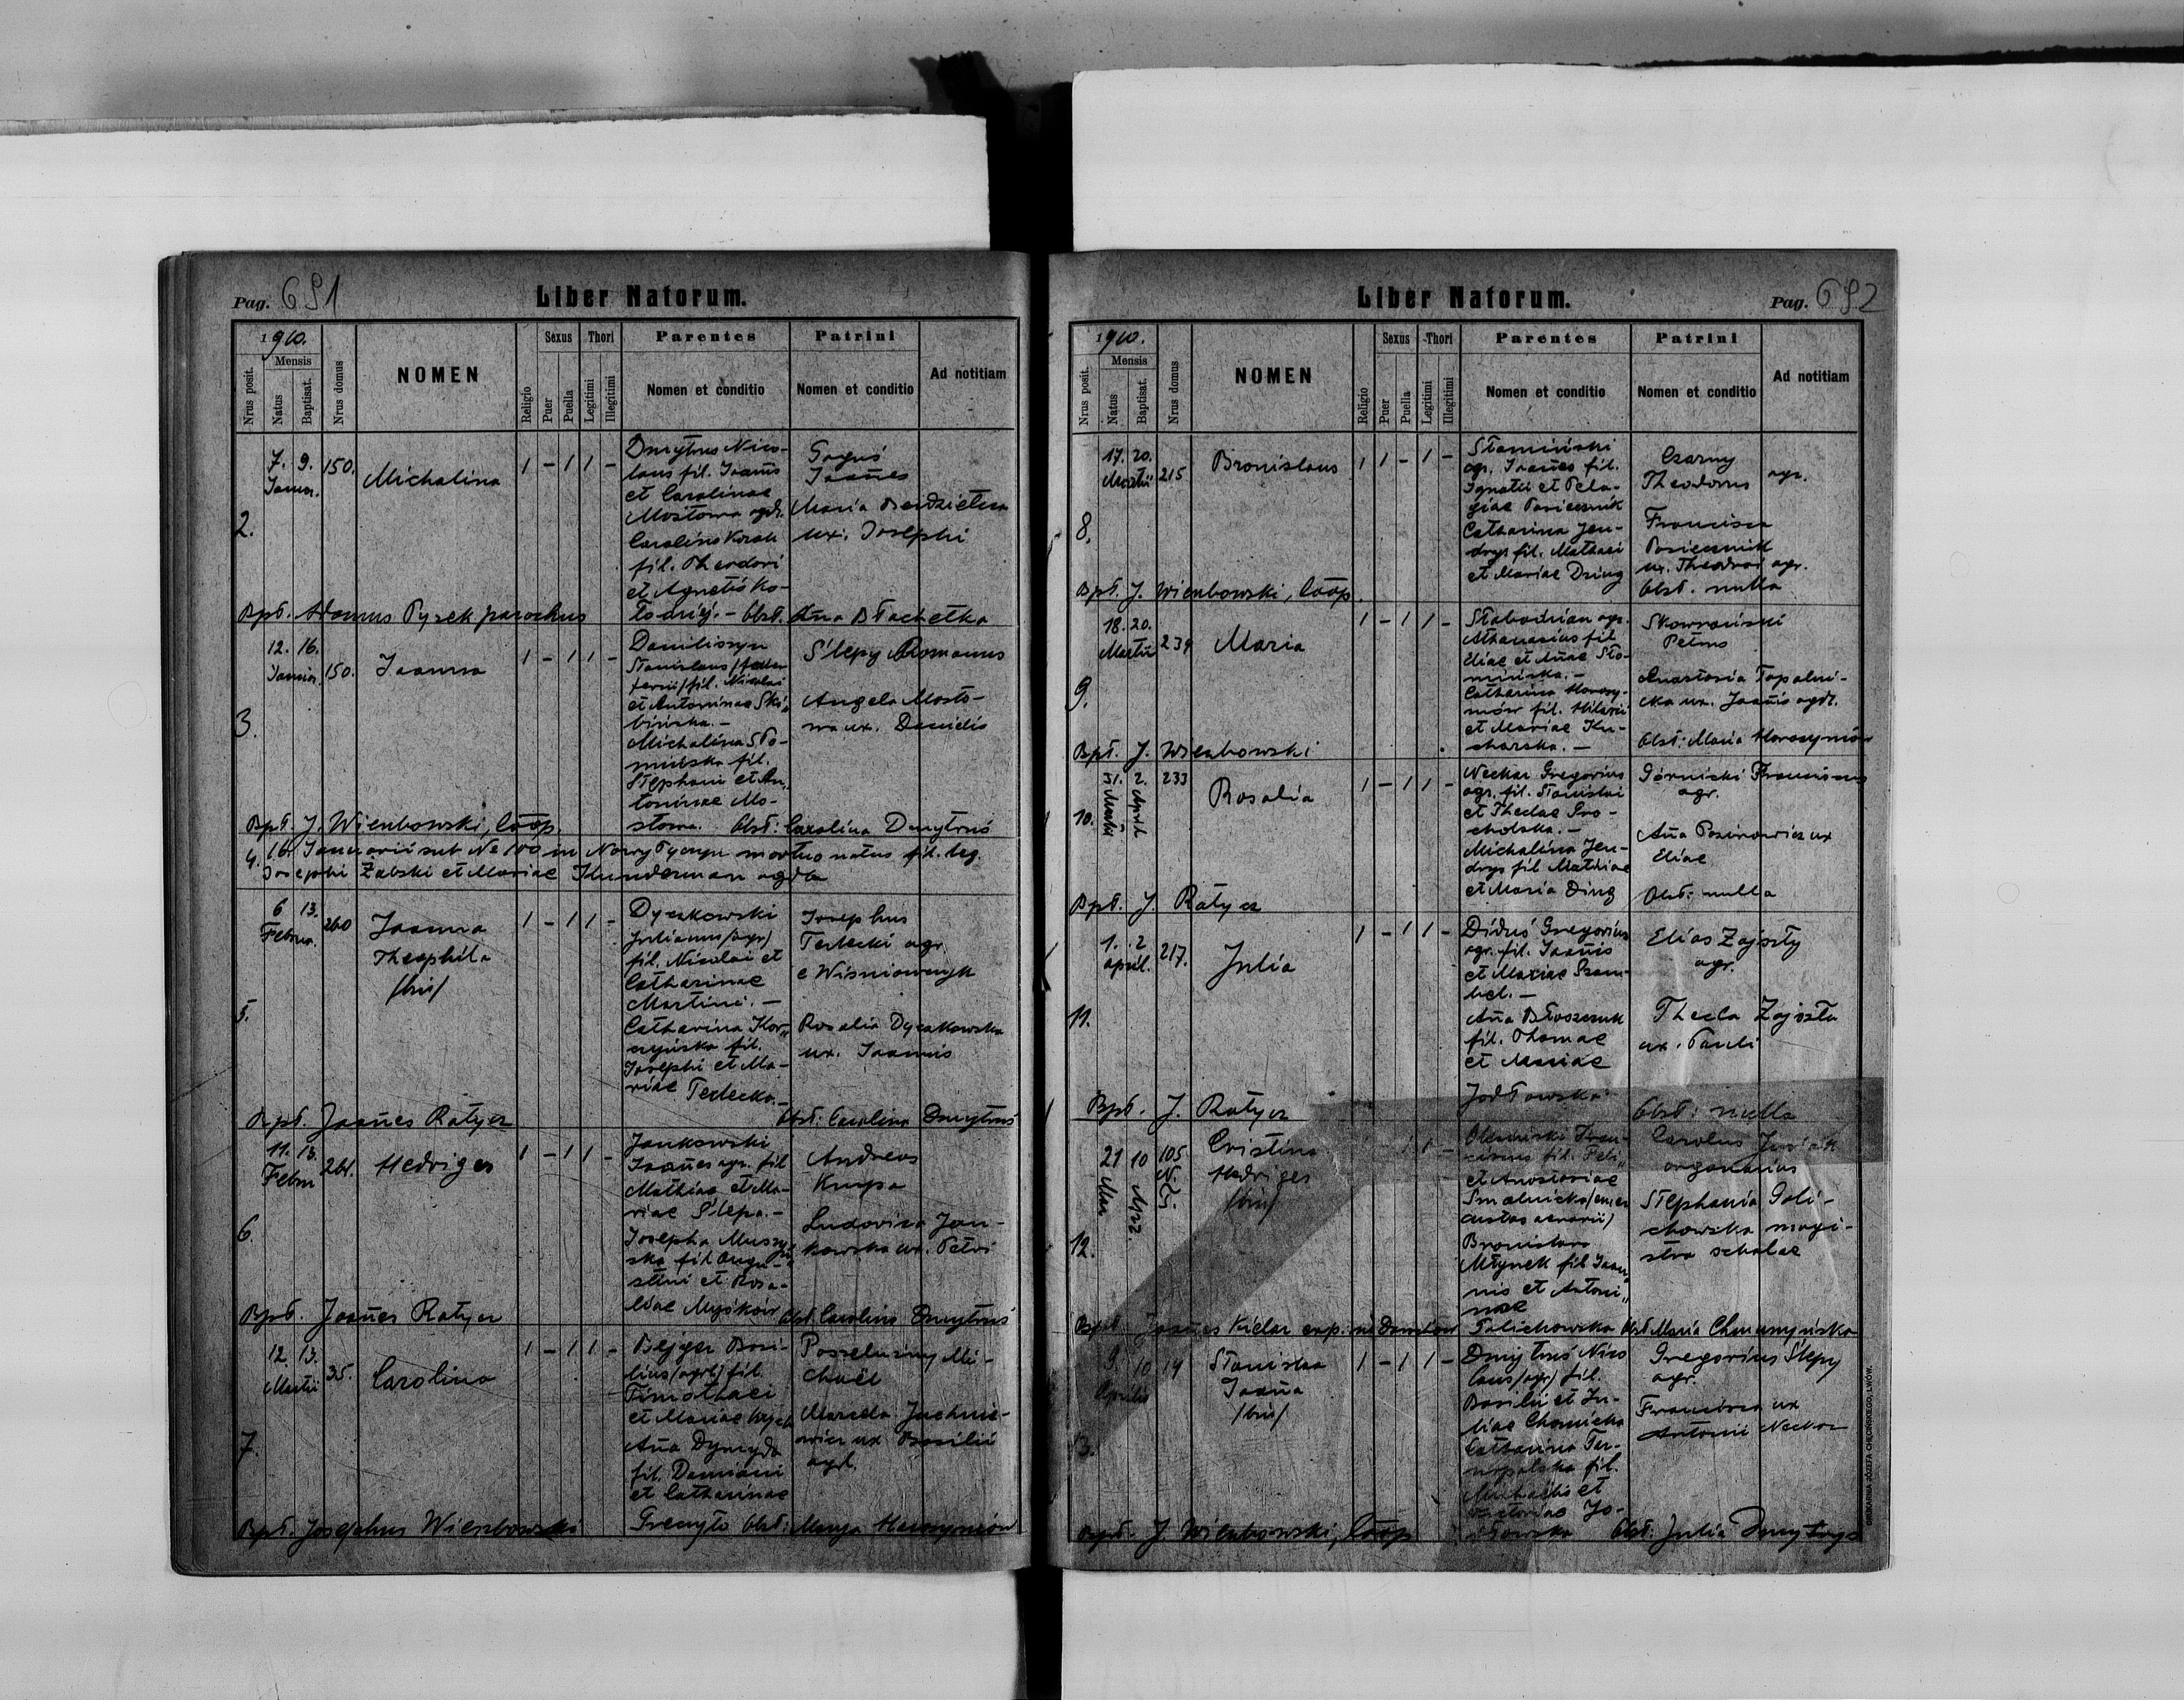 Pag. 691
Liber Natorum.
1910.
Mensis
Nrus posit.
Natus
Baptisat.
Nrus domus
NOMEN
Religio
Sexus
Puer
Puella
Thori
Legitimi
Illegitimi
Parentes
Nomen et conditio
Patrini
Nomen et conditio
Ad notitiam
2.
7. 9.
Januar.
150.
Michalina
1 - 1 1 -
Dmytrus Nico-
laus fil. Joanis
et Carolinae
Mostowa agr.
Carolina
fil. Theodori
et Agnetis Ko-
łodziej. - Obst. Ana Błachetka
Joanes
Maria
ux. Josephi
Bpt. Adamus Pyrek parochus
3.
12. 16.
Januar.
150.
Joanna
1 - 1 1 -
Daniliszyn
Stanislaus
fil. Nicolai
et Antoninae Ski-
bińska. -
Michalina Sło-
mińska fil.
Stephani et An-
toninae Mo-
stowa. Obst: Carolina Dmytruś
Slepy Romanus
Angela Mosto-
wa ux. Danielis
Bpt. J. Wierzbowski, Coop.
4. 16. Januarii sub No 100 in Nowy Tyczyn mortuo natus fil. leg.
Josephi Żabski et Mariae Kunderman agdae
5.
6 13.
Februar.
260
Joanna
Theophila
/bin/
1 - 1 1 -
Dyczkowski
Julianus /agr/
fil. Nicolai et
Catharinae
Martini. -
Catharina Kor-
czyńska fil.
Josephi et Ma-
riae Terlecka. -
Josephus
Terlecki agr.
e Wiśniowczyk
Rosalia Dyczkowska
ux. Joannis
Bpt. Joanes Ratycz
Obst: Carolina Dmytruś
6.
11. 13.
Febru
261.
Hedriges
1 - 1 1 -
Jankowski
Joanes agr. fil
Mathiae et Ma-
riae Slepa. -
Josepha
ska fil Augu-
stini et Rosa-
liae Myśków
Andreas
Krupa
Ludovica Jan-
kowska ux. Petri
Bpt. Joanes Ratycz
Obst. Carolina Dmytruś
7.
12. 13.
Martii
35.
Carolina
1 - 1 1 -
Bejger Basi-
lius /agr/ fil.
Timothaei
et Mariae
Ana Dymyda
fil. Damiani
et Catharinae
Greczyło Obst: Marya Harasymów
Posłuszny Mi-
chaël
Marcela Juchnie-
wicz ux Basilii
agr.
Bpt. Josephus Wierzbowski
Liber Natorum.
Pag. 692
1910.
Mensis
Nrus posit.
Natus
Baptisat.
Nrus domus
NOMEN
Religio
Sexus
Puer
Puella
Thori
Legitimi
Illegitimi
Parentes
Nomen et conditio
Patrini
Nomen et conditio
Ad notitiam
8.
17. 20.
Martii
215
Bronislaus
1 1 - 1 -
Słamiński
agr. Joanes fil.
Ignatii et Pela-
giae Pasiecznik
Catharina Jen-
drys fil. Mathaei
et Mariae Dziug
Czarny
Theodorus agr.
Francisca
Pasiecznik
ux. Theodori agr.
Obst. nulla
Bpt. J. Wierzbowski, Coop.
9.
18. 20.
Martii
239
Maria
1 - 1 1 -
Słabodzian agr.
Athanasius fil
Eliae et Anae Sło-
mińska. -
Catharina Harasy-
mów fil. Hilarii
et Mariae Ku-
charska. -
Skowroński
Petrus
Anastasia Topolni-
cka ux. Joanis agr.
Obst: Maria Harasymów
Bpt. J. Wierzbowski
10.
31. 2.
Martii April
233
Rosalia
1 - 1 1 -
Neckar Gregorius
agr. fil. Stanislai
et Theclae Gro-
cholska. -
Michalina Jen-
drys fil Mathiae
et Maria Dziug
Górnicki Franciscus
agr.
Ana ux
Eliae
Obst: nulla
Bpt. J. Ratycz
11.
1. 2
april.
217.
Julia
1 - 1 1 -
Diduś Gregorius
agr. fil. Joanis
et Mariae Szam-
bel. -
Ana Błoszczuk
fil. Thomae
et Mariae
Jodłowska
Elias Zajszły
agr.
Thecla Zajszła
ux. Pauli
Obst: nulla
Bpt. J. Ratycz
12.
21 10
105
N. T.
Cristina
Hedriges
/bin/
1 1 -
Oleśnicki Fran-
ciscus fil. Feli-
et Anastasiae
Smolnicka
custos aerarii/
Bronislava
Młynek fil Joan-
nis et Antoni-
nae
Golichowska Obst Maria
Carolus
organarius
Stephania Goli-
chowska magi-
stra scholae
Bpt. Joanes Kielar exp. in
13.
9. 10
Aprilis
19
Stanislaa
Joana
/bin/
1 - 1 1 -
Dmytruś Nico
laus /agr/ fil.
Basilii et Ju-
liae Chomicka
Catharina Tar-
nopolska fil.
Michaëlis et
Victoriae Jo-
dłowska Obst: Julia Dmytryś
Gregorius Slepy
agr.
Francisca ux
Antonii Neckar
Bpt. J. Wierzbowski, Coop
DRUKARNIA JÓZEFA CHĘCIŃSKIEGO, LWÓW.